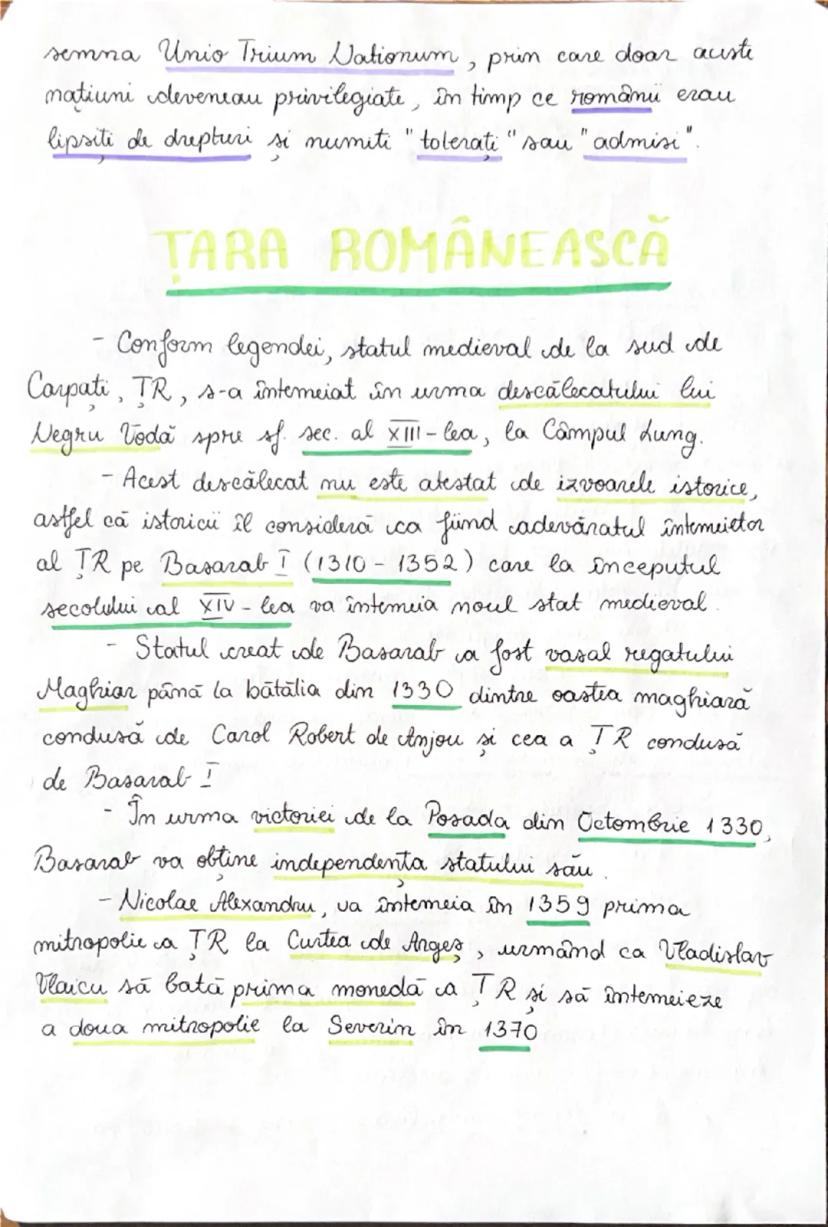 semna Unio Trium Nationum, prin care doar aceste
națiuni deveneau privilegiate, în timp ce românii erau
lipsiți de drepturi și numiți "tolerați" sau "admiși".
ȚARA ROMÂNEASCĂ
- Conform legendei, statul medieval de la sud de
Carpați, ȚR, s-a întemeiat în urma descălecatului lui
Negru Vodă spre sf. sec. al XIII-lea, la Câmpul Lung.
- Acest descălecat nu este atestat de izvoarele istorice,
astfel că istoricii îl consideră ca fiind adevăratul întemeietor
al ȚR pe Basarab I (1310 - 1352) care la începutul
secolului al XIV-lea va întemeia noul stat medieval.
- Statul creat de Basarab a fost vasal regatului
Maghiar până la bătălia din 1330 dintre oastea maghiară
condusă de Carol Robert de Anjou și cea a ȚR condusă
de Basarab I
- În urma victoriei de la Posada din Octombrie 1330,
Basarab va obține independența statului său.
- Nicolae Alexandru, va întemeia în 1359 prima
mitropolie a ȚR la Curtea de Argeș, urmând ca Vladislav
Vlaicu să bată prima monedă a ȚR și să întemeieze
a doua mitropolie la Severin în 1370